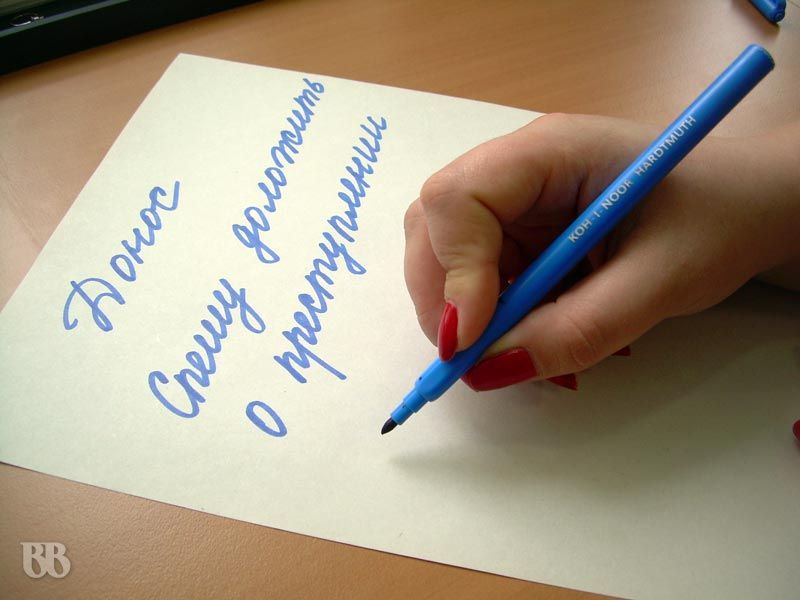 Донос
Спешу доложить
о преступлении
KOH-I-NOOR HARDTMUTH
BB